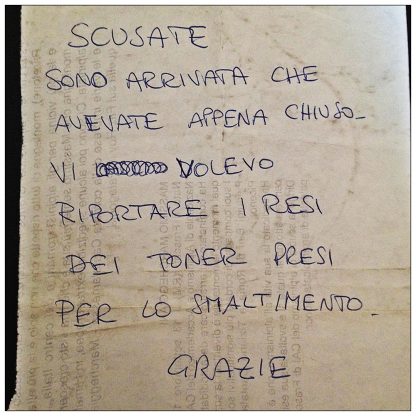 SCUSATE
SONO ARRIVATA CHE
AVEVATE APPENA CHIUSO_
VI VOLEVO
RIPORTARE I RESI
DEI TONER PRESI
PER LO SMALTIMENTO_
GRAZIE